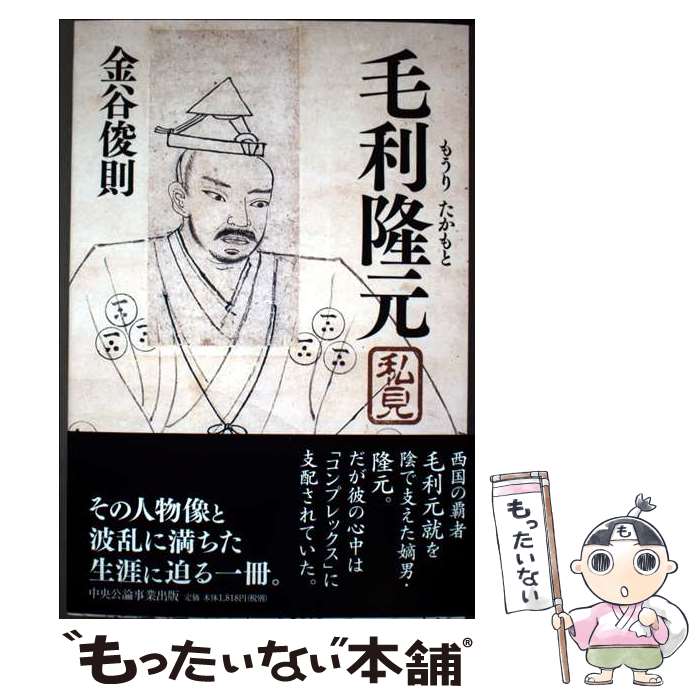 毛利隆元
もうり たかもと
私見
金谷俊則
西国の覇者
毛利元就を
陰で支えた嫡男・
隆元。
だが彼の心中は
「コンプレックス」に
支配されていた。
その人物像と
波乱に満ちた
生涯に迫る一冊。
中央公論事業出版 定価 本体1,818円(税別)
もったいない
も
“もったいない本舗”®